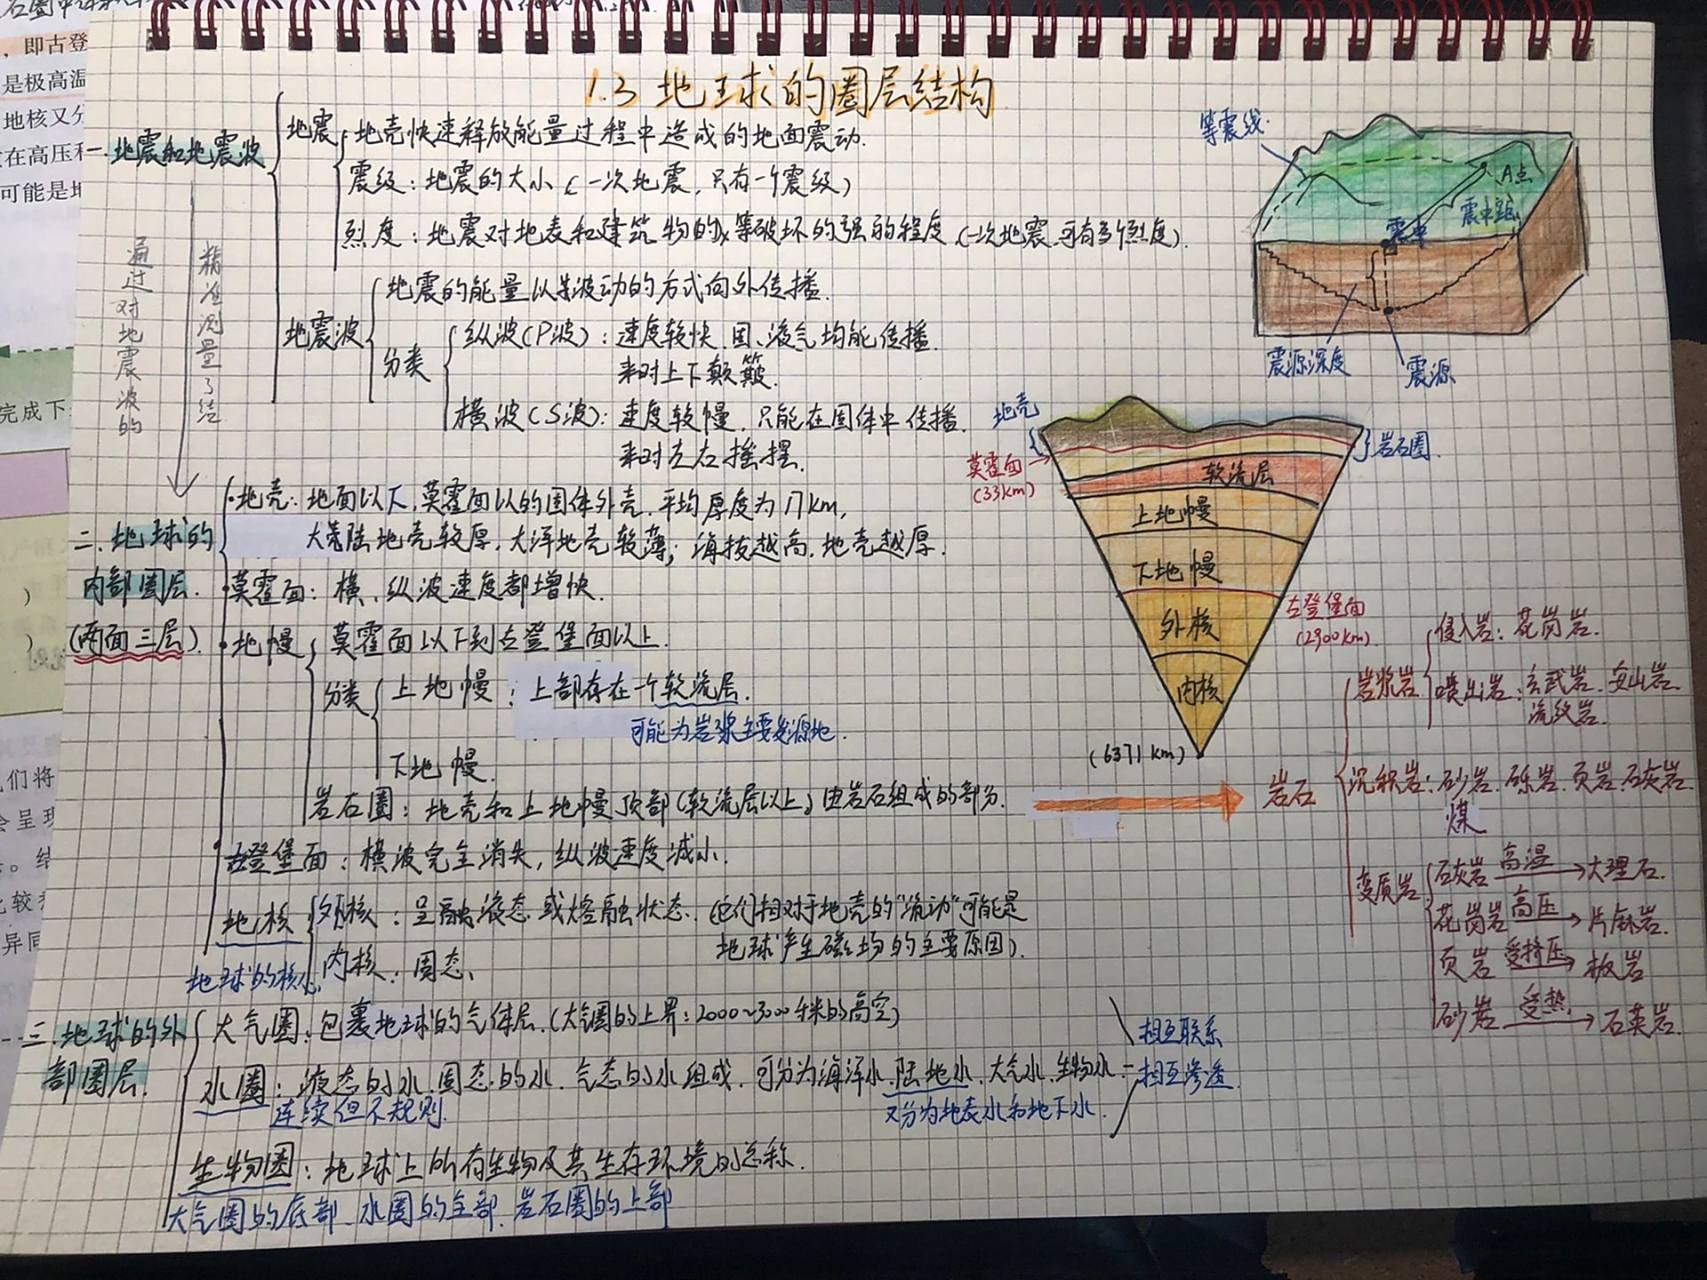 1.3 地球的圈层结构
一.地震和地震波
地震
地壳快速释放能量过程中造成的地面震动.
震级：地震的大小（一次地震，只有一个震级）
烈度：地震对地表和建筑物的等破坏的强的程度（一次地震可有多个烈度）.
地震波
地震的能量以波动的方式向外传播.
分类
纵波（P波）：速度较快.固、液气均能传播.
来时上下颠簸.
横波（S波）：速度较慢，只能在固体中传播.
来时左右摇摆.
通过对地震波的
精准测量了结
二.地球的
内部圈层.
（两面三层）.
地壳：地面以下，莫霍面以的固体外壳.平均厚度为17km,
大陆地壳较厚，大洋地壳较薄；海拔越高.地壳越厚.
莫霍面：横、纵波速度都增快.
地幔
莫霍面以下到古登堡面以上.
分类
上地幔：上部存在一个软流层.
可能为岩浆主要发源地.
下地幔.
岩石圈：地壳和上地幔顶部（软流层以上）由岩石组成的部分.
古登堡面：横波完全消失，纵波速度减小.
地核
地球的核心
外核：呈融液态或熔融状态.（他们相对于地壳的“流动”可能是
地球产生磁场的主要原因）.
内核：固态、
三.地球的外
部圈层.
大气圈：包裹地球的气体层.（大气圈的上界：2000~3000千米的高空）
水圈：液态的水.固态的水.气态的水组成.可分为海洋水.陆地水.大气水.生物水
连续但不规则.
又分为地表水和地下水.
生物圈：地球上所有生物及其生存环境的总称.
大气圈的底部、水圈的全部、岩石圈的上部
相互联系
相互渗透.
等震线.
A点
震中
震中距
震源深度
震源
地壳
莫霍面
（33km）
岩石圈.
软流层
上地幔
下地幔
古登堡面
（2900km）.
外核
内核
（6371km）
岩石
岩浆岩
侵入岩：花岗岩.
喷出岩：玄武岩、安山岩
流纹岩.
沉积岩：砂岩.砾岩.页岩.石灰岩.
煤
变质岩
石灰岩 高温 大理石.
花岗岩 高压 片麻岩.
页岩 受挤压 板岩
砂岩 受热 石英岩.
，即古登
是极高温
地核又分
在高压和
可能是地
完成下
们将
会呈现
。结
比较
异同